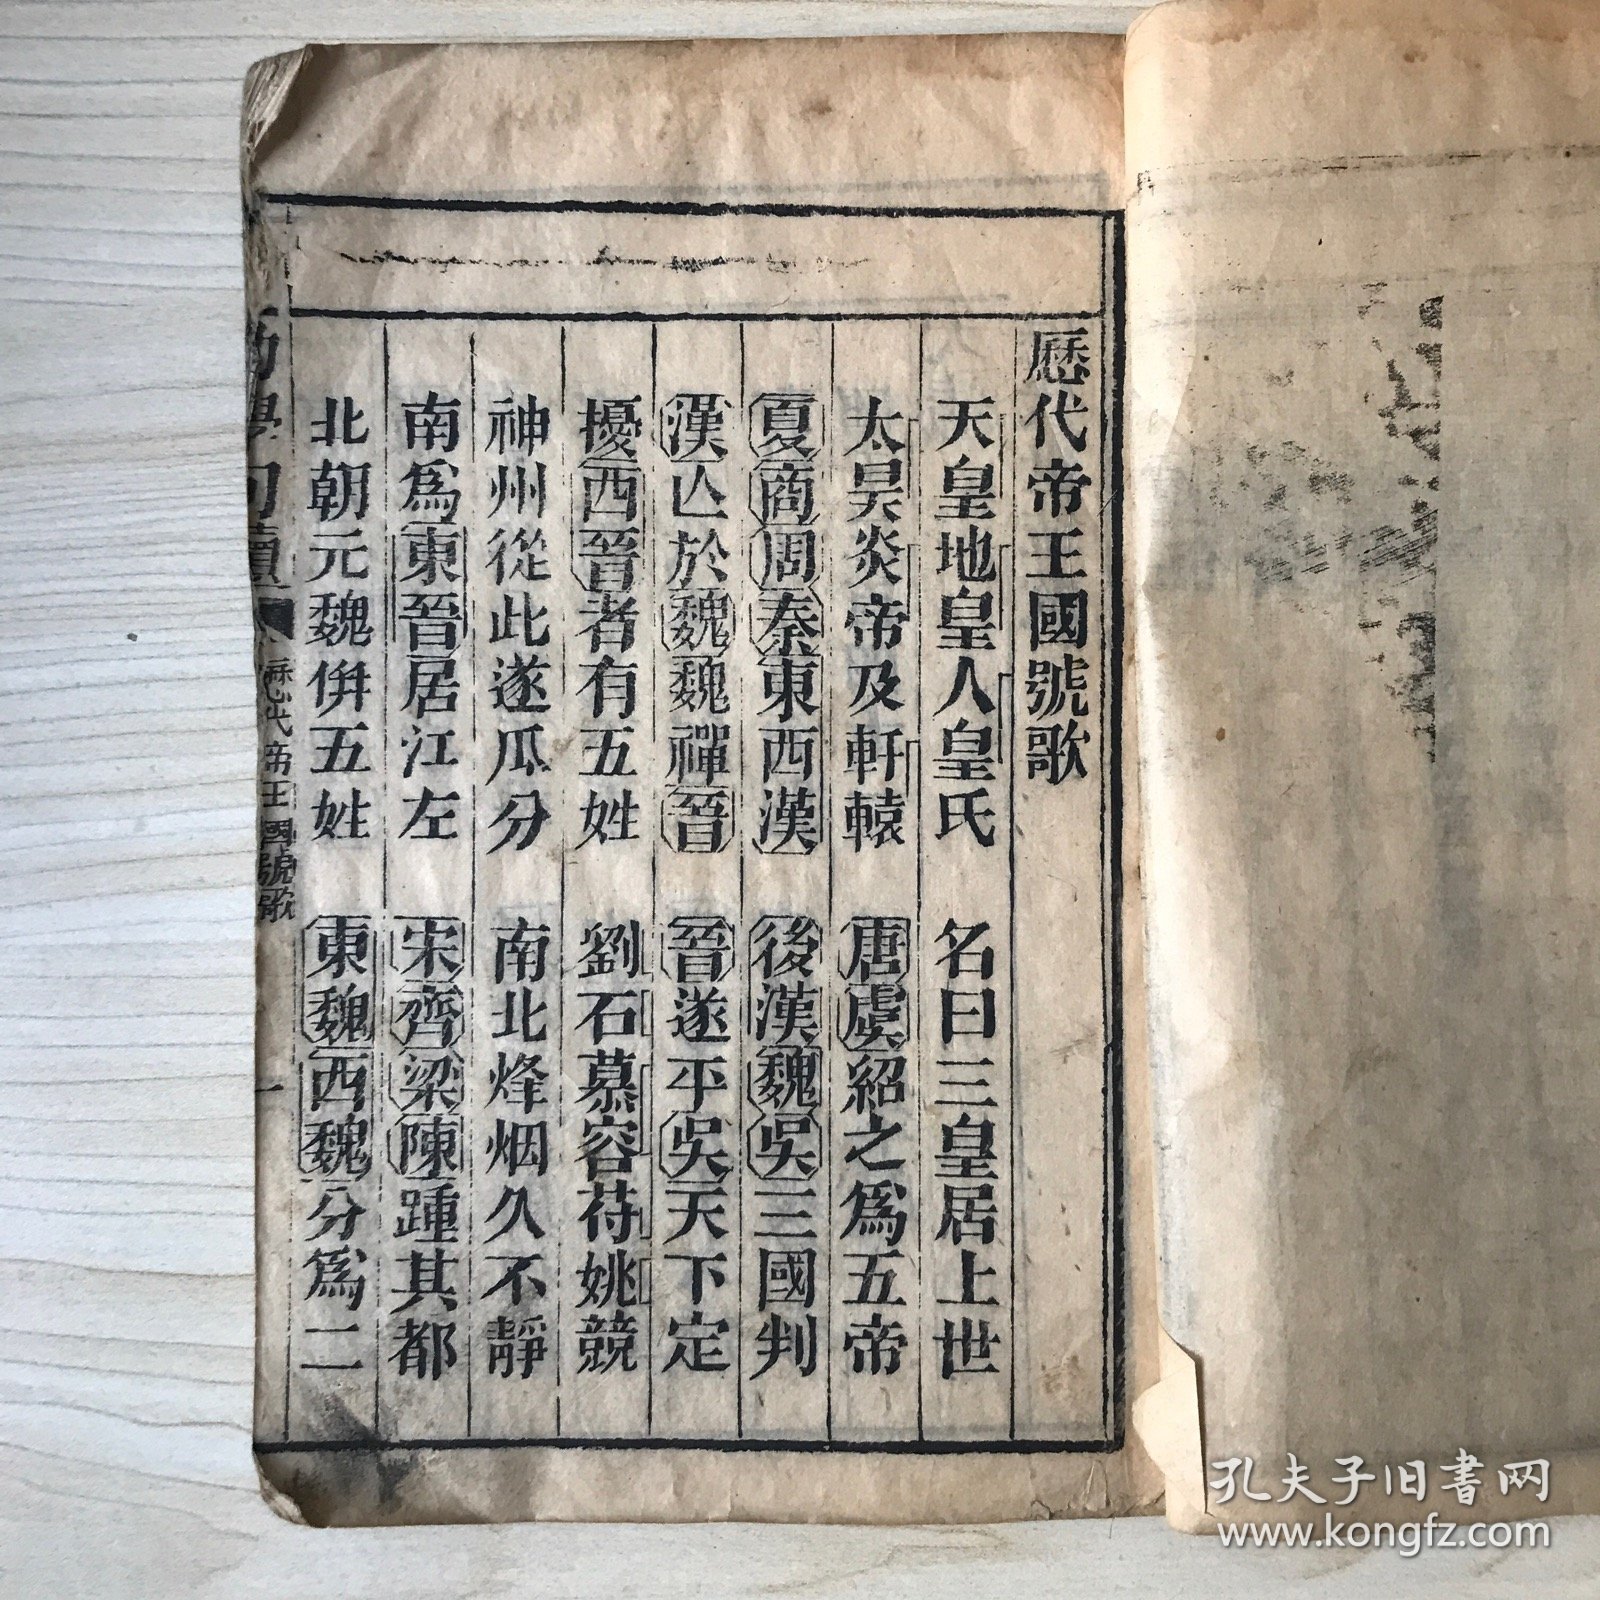 歷代帝王國號歌
天皇地皇人皇氏 名曰三皇居上世
太昊炎帝及軒轅 唐虞紹之爲五帝
夏商周秦東西漢 後漢魏吳三國判
漢亾於魏魏禪晉 晉遂平吳天下定
擾西晉者有五姓 劉石慕容苻姚競
神州從此遂瓜分 南北烽烟久不靜
南爲東晉居江左 宋齊梁陳踵其都
北朝元魏倂五姓 東魏西魏分爲二
學 讀 代帝王國號歌 一
孔夫子旧书网
www.kongfz.com